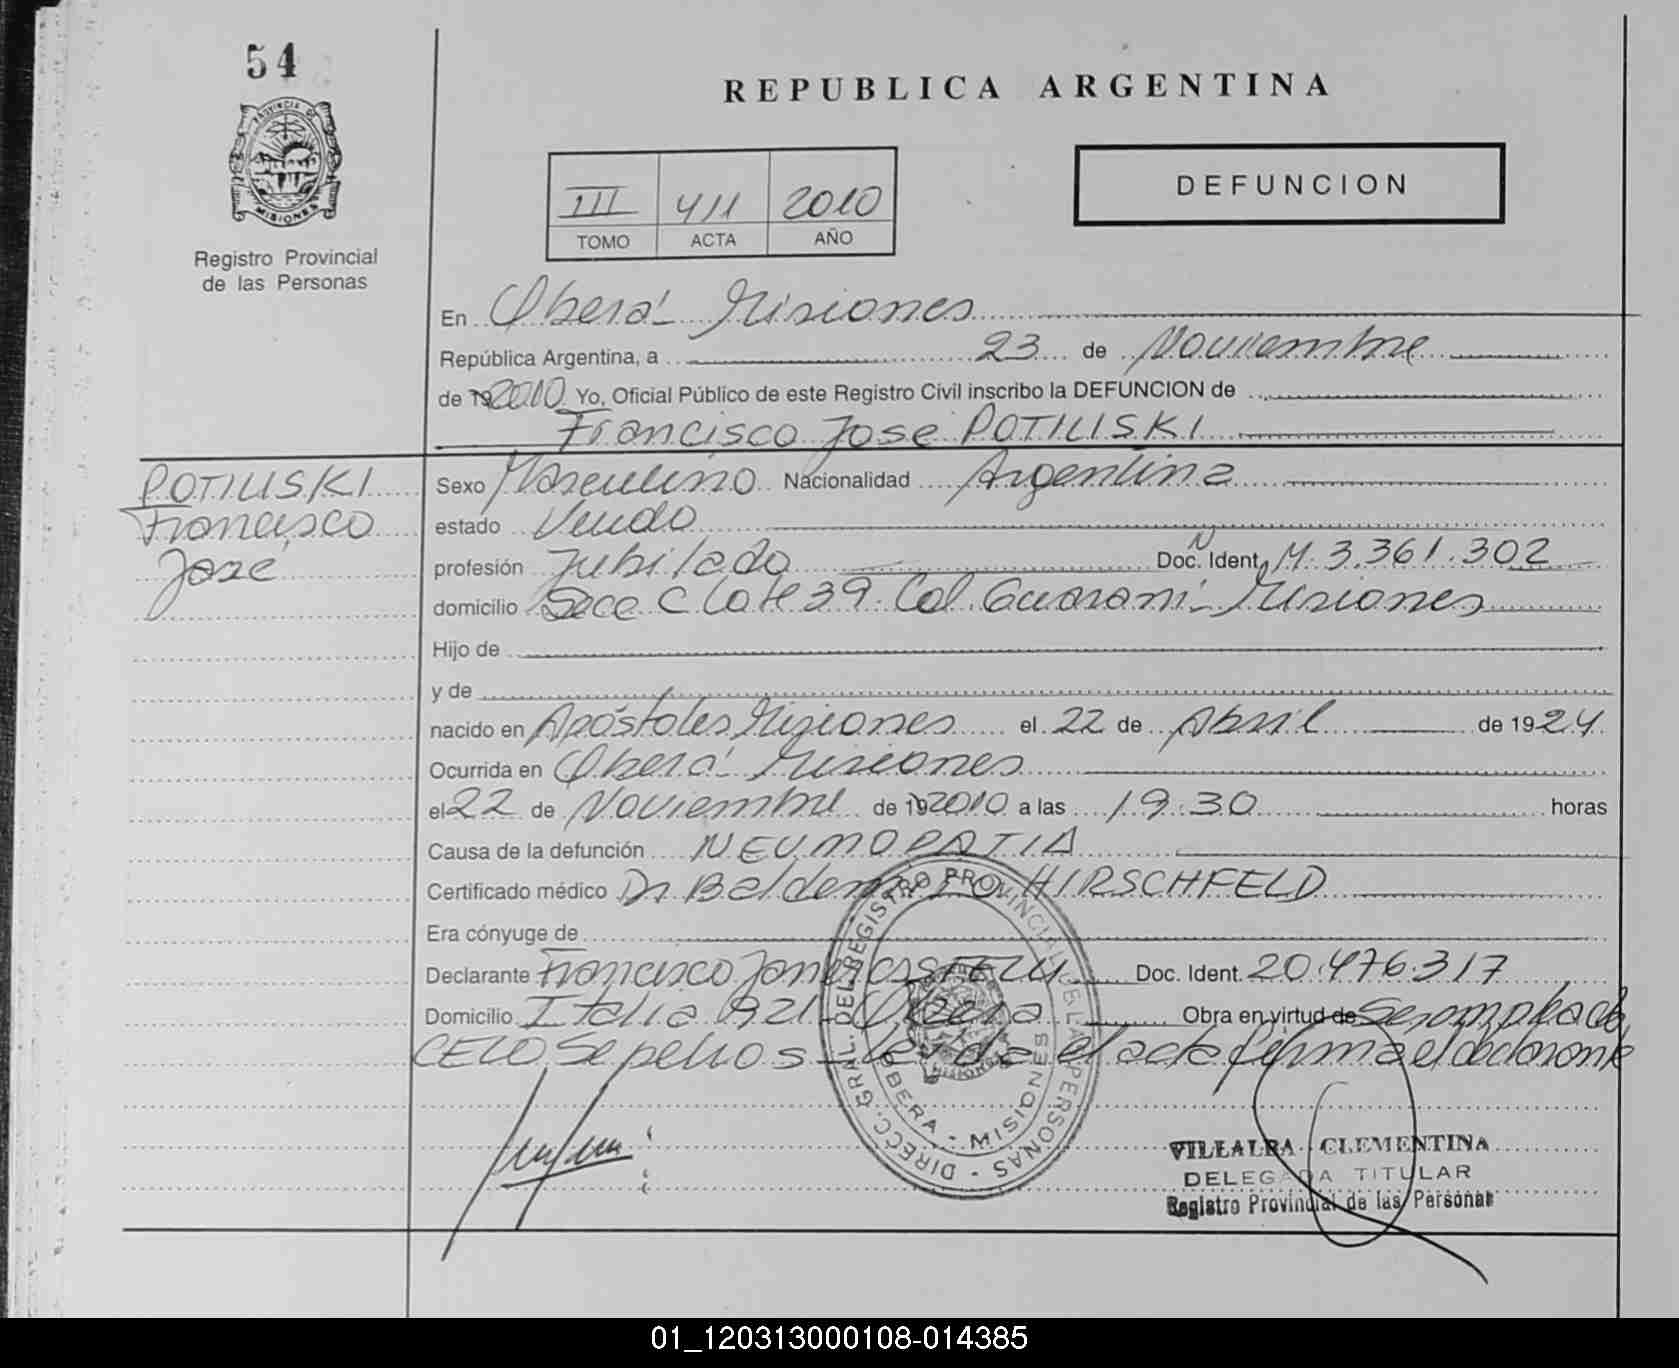 54
REPUBLICA ARGENTINA
PROVINCIA DE MISIONES
DEFUNCION
III 411 2010
TOMO ACTA AÑO
Registro Provincial
de las Personas
En Oberá Misiones
República Argentina, a 23 de Noviembre
de 19 2010 Yo, Oficial Público de este Registro Civil inscribo la DEFUNCION de
Francisco Jose POTILISKI
POTILISKI
Francisco
José
Sexo Masculino Nacionalidad Argentina
estado Viudo
profesión Jubilado Doc. Ident. Nº M. 3.361.302
domicilio Secc C Lote 39 Col. Guaraní - Misiones
Hijo de
y de
nacido en Apóstoles Misiones el 22 de Abril de 1924
Ocurrida en Oberá Misiones
el 22 de Noviembre de 19 2010 a las 19:30 horas
Causa de la defunción NEUMOPATIA
Certificado médico Dr Baldemiro HIRSCHFELD
Era cónyuge de
Declarante Francisco Doc. Ident. 20.476.317
Domicilio Italia 921 - Oberá Obra en virtud de Ser empleado de
CELO Sepelios - Leída el acta firma el declarante
DIRECC. GRAL. DEL REGISTRO PROVINCIAL DE LAS PERSONAS
OBERA - MISIONES
VILLALBA CLEMENTINA
DELEGADA TITULAR
Registro Provincial de las Personas
01_120313000108-014385